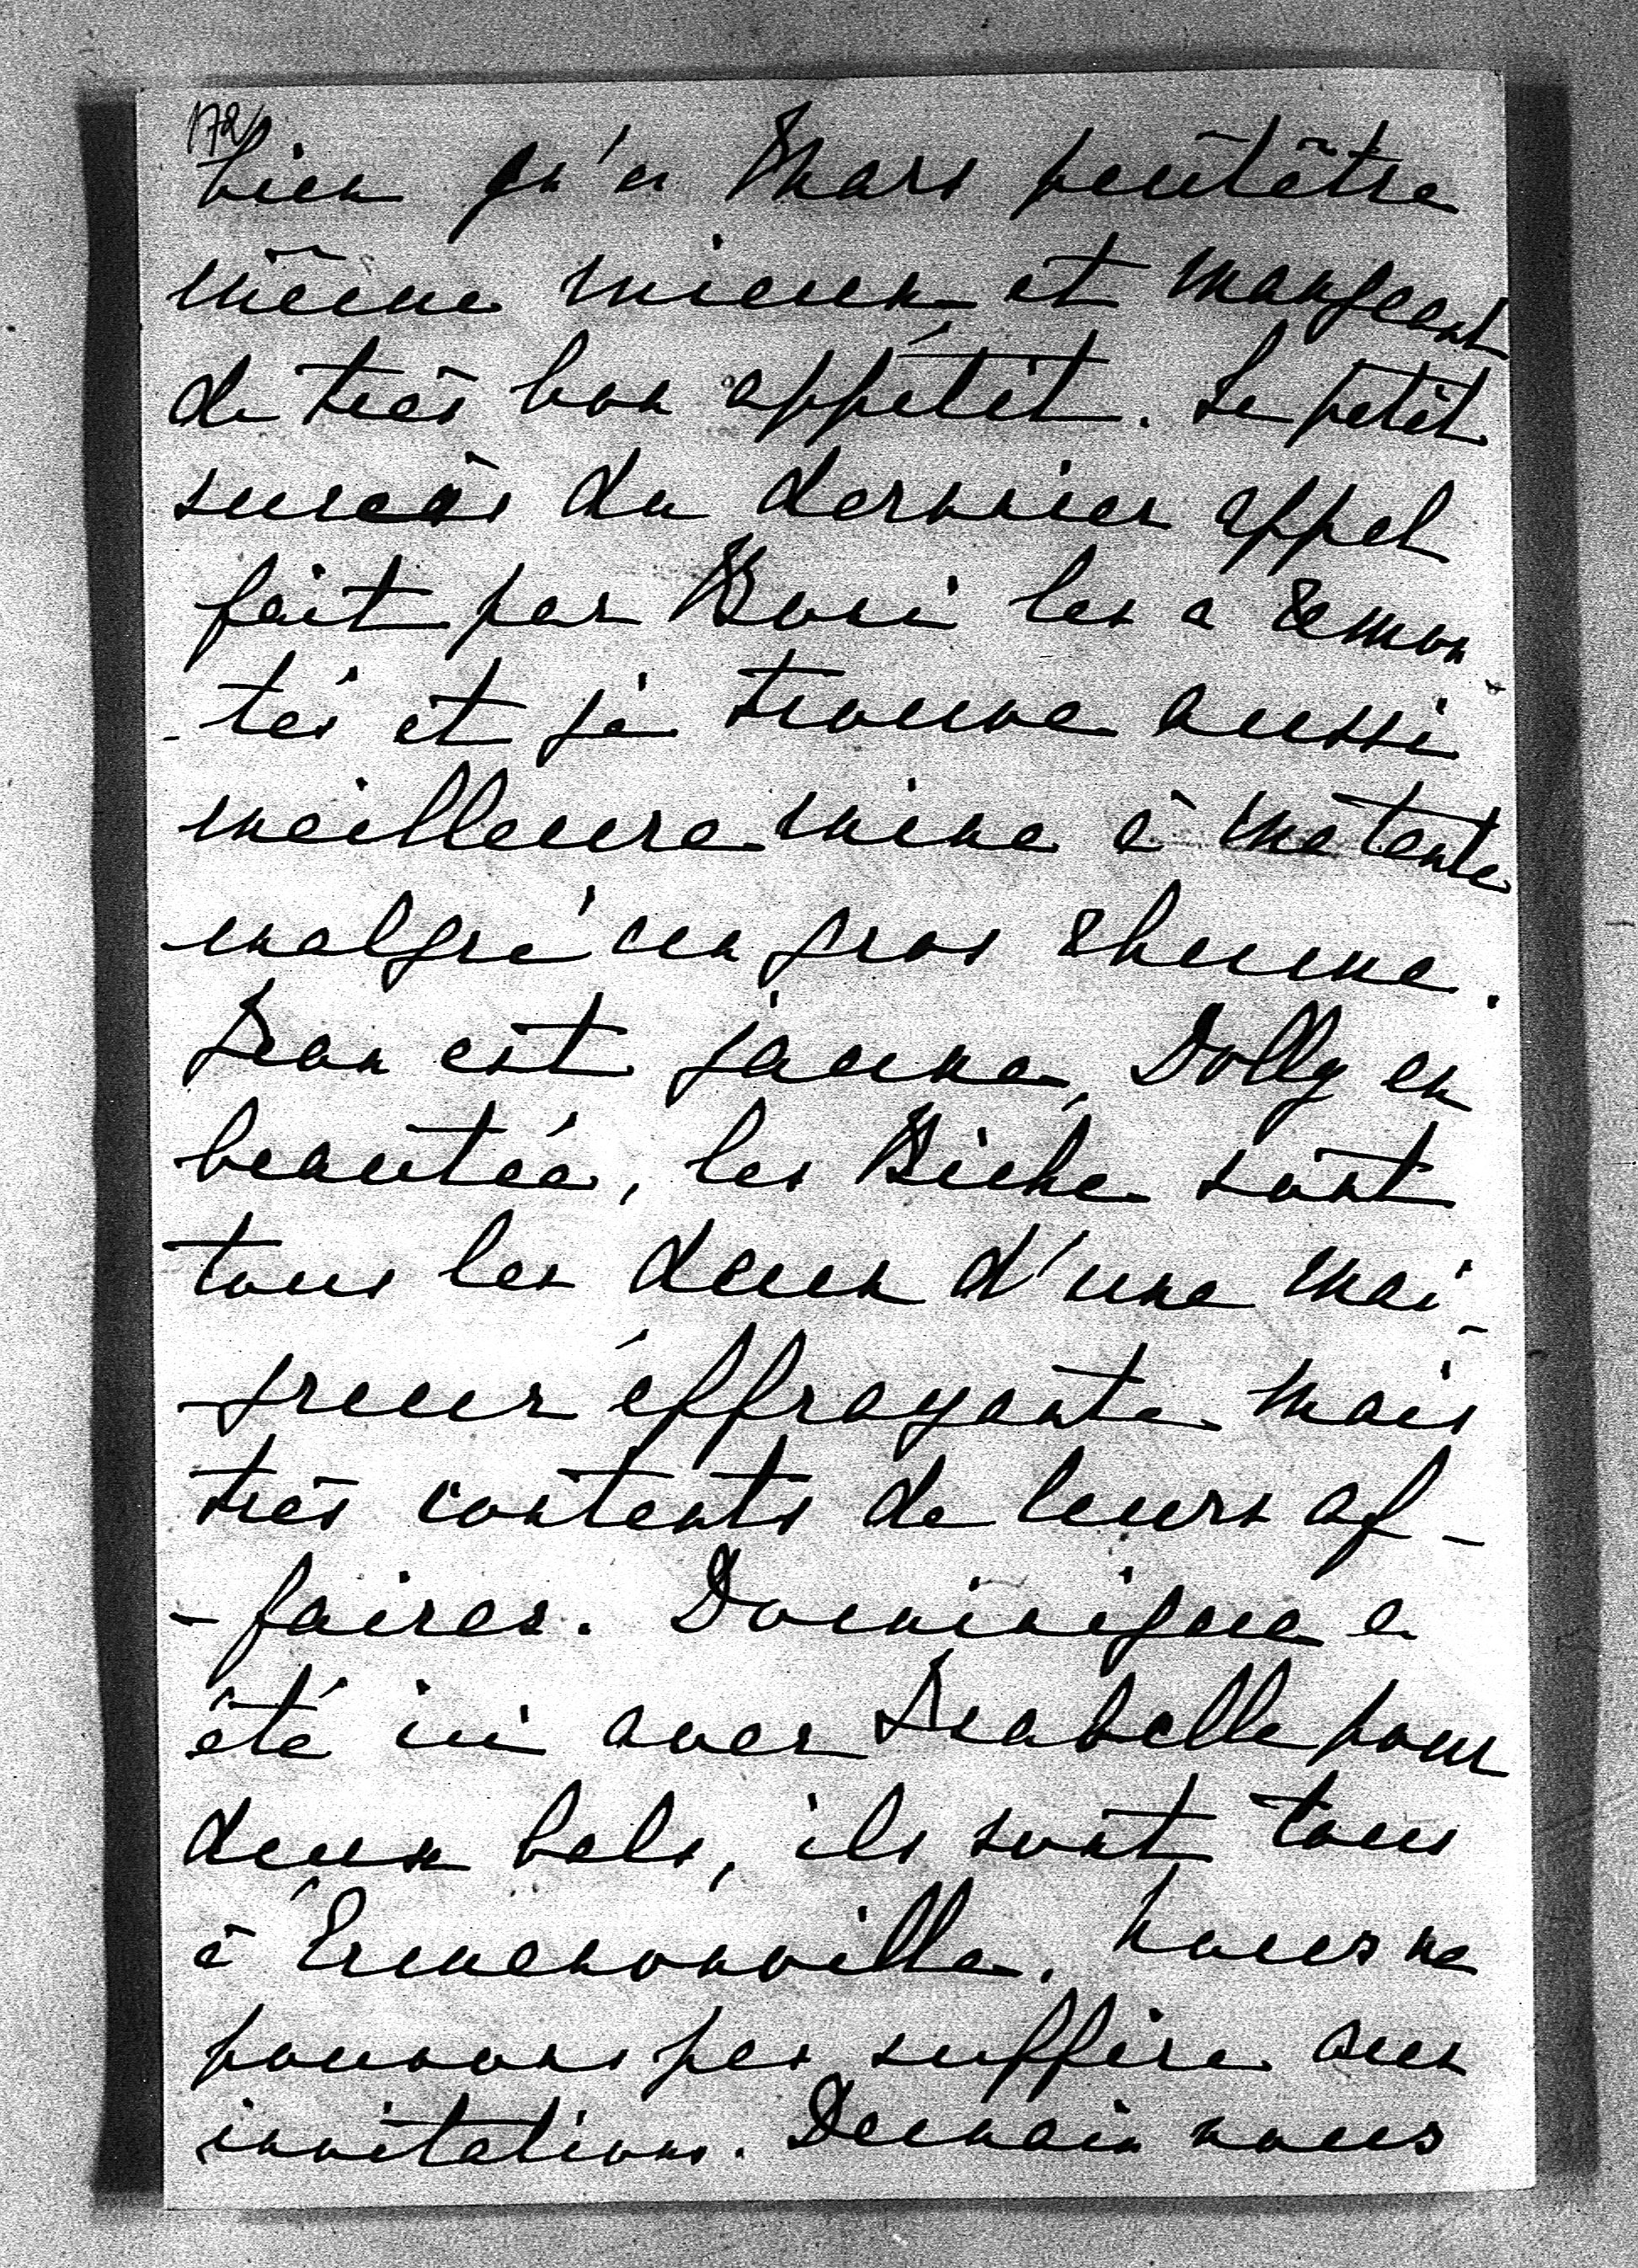 172
bien qu'à Mars peutêtre
même mieux et mangeant
de très bon appétit. Le petit
succès du dernier appel
fait par Boni les a remon
-tés et je trouve aussi
meilleure mine à ma tante
malgré un gros rhume.
Jean est jaune, Dolly en
beautée, les Biche sont
tous les deux d'une mai-
-greur éffrayante mais
très contents de leurs af-
-faires. Dominique a
été ici avec Isabelle pour
deux bals, ils sont tous
à Ermenonville. Nous ne
pouvons pas suffire aux
invitations. Demain nous